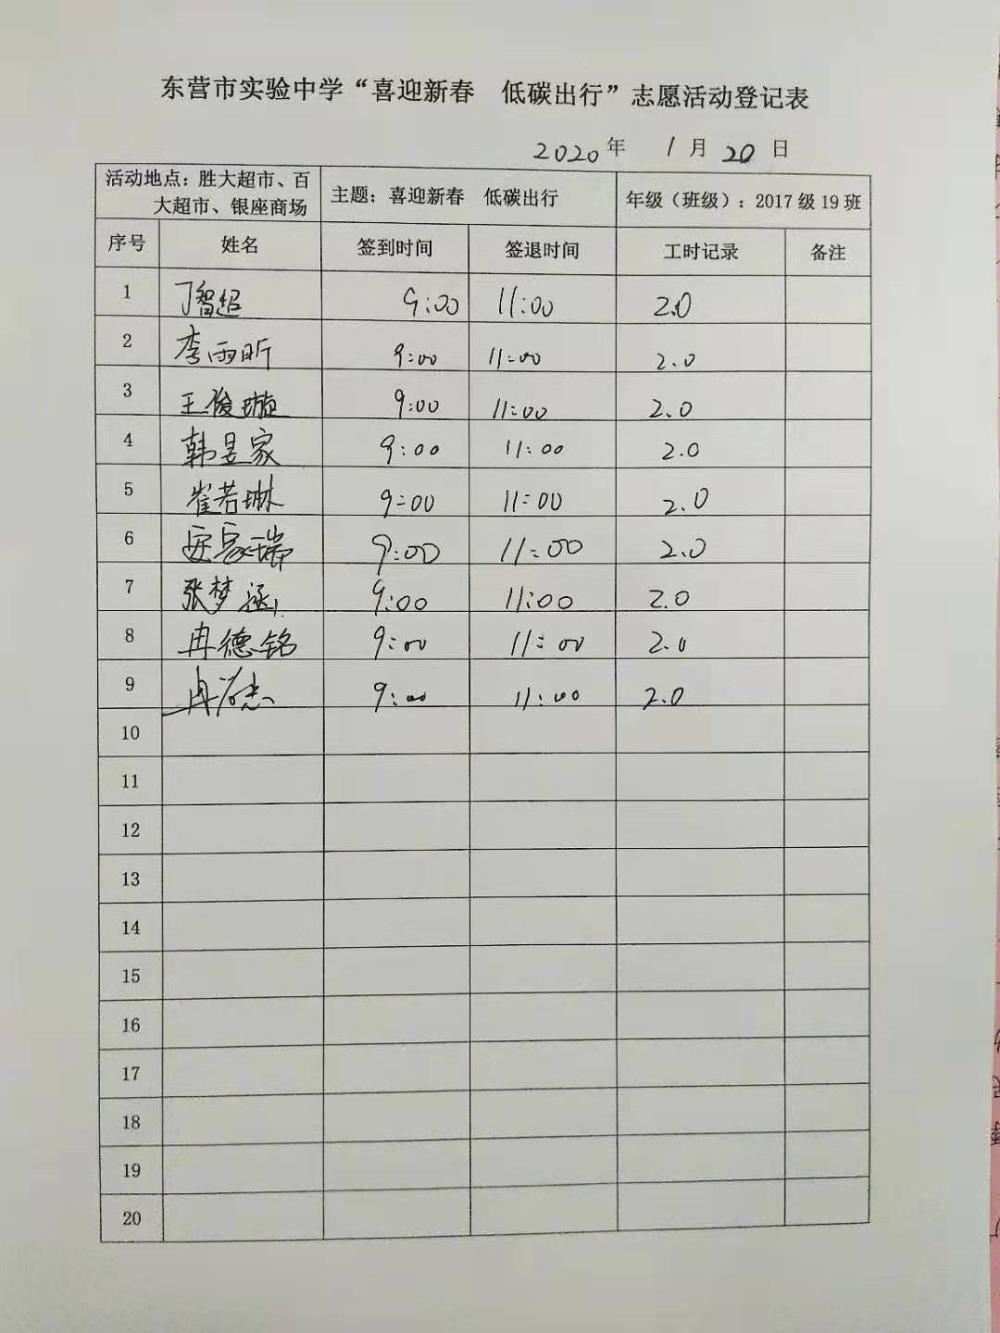 东营市实验中学“喜迎新春　低碳出行”志愿活动登记表
2020年 1月20日
活动地点：胜大超市、百大超市、银座商场 主题：喜迎新春　低碳出行 年级（班级）：2017级19班
序号 姓名 签到时间 签退时间 工时记录 备注
1 丁智超 9:00 11:00 2.0
2 李雨昕 9:00 11:00 2.0
3 王俊璇 9:00 11:00 2.0
4 韩昱家 9:00 11:00 2.0
5 崔若琳 9:00 11:00 2.0
6 安家瑞 9:00 11:00 2.0
7 张梦涵 9:00 11:00 2.0
8 冉德铭 9:00 11:00 2.0
9 9:00 11:00 2.0
10
11
12
13
14
15
16
17
18
19
20